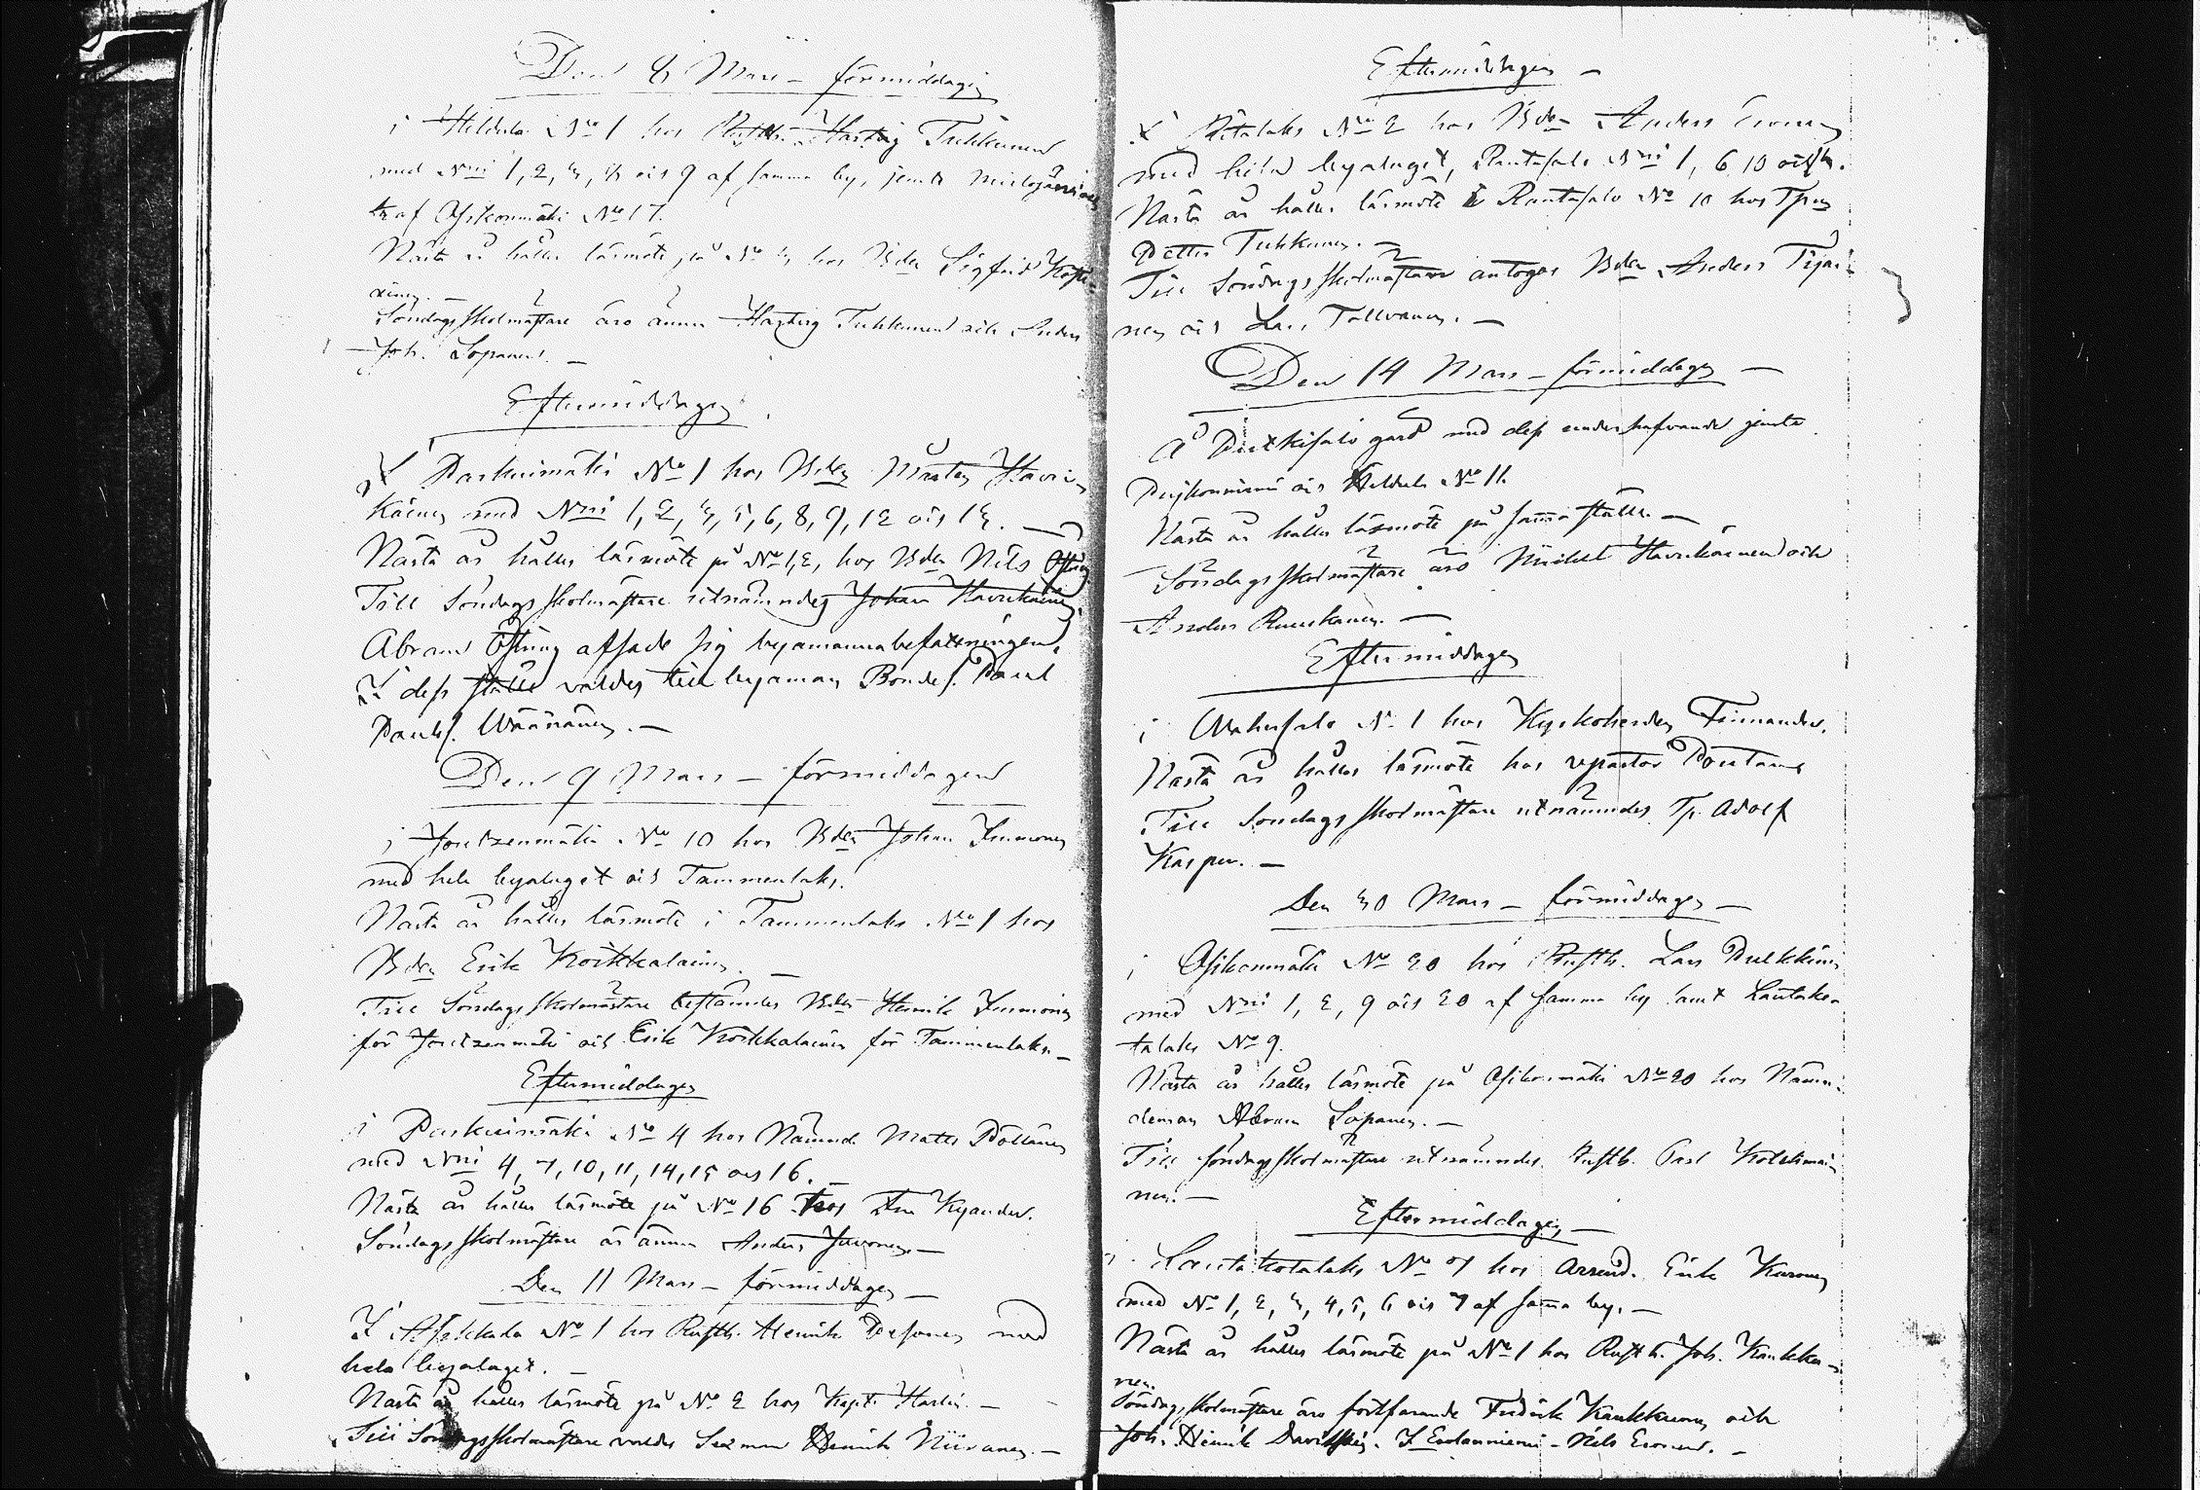 Den 8 Mars – förmiddagen
i Heldula No 1 hos Rusth. Hartvig Tuhkunen
med Nrni 1, 2, 3, 8 och 9 af samma by, jemte
tr af Asikonmäki No 17.
Nästa år hålles läsmöte på No 3 hos Bden Sigfrid
Söndagsskolmästare äro ännu Hartvig Tuhkunen och Anders
Joh. Sopanen. –
Eftermiddagen
I Paskuimäki No 1 hos Bden Mårten Havu-
käinen med Nrni 1, 2, 3, 5, 6, 8, 9, 12 och 13. –
Nästa år hålles läsmöte på No 12, hos Bden Nils
Till Söndagsskolmästare utnämndes Johan Havukainen.
Abram afsade sig byamannabefattningen,
I dess ställe valdes till byaman Bondes. Paul
Paulss. Väänänen. –
Den 9 Mars – förmiddagen
i Joutzenmäki No 10 hos Bden Johan Immonen
med hela byalaget och Tammenlaks.
Nästa år hålles läsmöte i Tammenlaks No 1 hos
Bden Erik Koikkalainen. –
Till Söndagsskolmästare bestämdes Bden Henrik Immonen
för Joutzenmäki och Erik Koikkalainen för Tammenlaks. –
Eftermiddagen
i Paskuimäki No 4 hos Nämnd. Matts Pöllänen
med Nrni 4, 7, 10, 11, 14, 15 och 16. –
Nästa år hålles läsmöte på No 16 hos Kyander.
Söndagsskolmästare är ännu Anders Juvonen. –
Den 11 Mars – förmiddagen –
I No 1 hos Rusth. Henrik Pesonen med
hela byalaget. –
Nästa år hålles läsmöte på No 2 hos Kapt. Harlin. –
Till Söndagsskolmästare valdes Henrik Niiranen. –
Eftermiddagen –
I No 2 hos Bden Anders Eronen
med hela byalaget, Rantasalo Nrni 1, 6, 10 och
Nästa år hålles läsmöte i Rantasalo No 10 hos
Petter Tuhkunen. –
Till Söndagsskolmästare antogos Bden Anders Tijai-
nen och Lars Tolvanen. –
Den 14 Mars – förmiddagen –
Å Putkisalo gård med dess underhafvande jemte
och Heldula No 11.
Nästa år hålles läsmöte på samma ställe. –
Söndagsskolmästare äro Mickel Havukainen och
Anders Ruuskanen. –
Eftermiddagen
i No 1 hos Kyrkoherden
Nästa år hålles läsmöte hos vpastor
Till Söndagsskolmästare utnämndes Tp. Adolf
Kasper. –
Den 30 Mars – förmiddagen –
i Asikonmäki No 20 hos Rusth. Lars Pulkkinen
med Nrni 1, 2, 9 och 20 af samma by samt Lautako-
talaks No 9.
Nästa år hålles läsmöte på Asikonmäki No 20 hos Nämn-
deman Abram Sopanen. –
Till söndagsskolmästare utnämndes Rusth. Carl
nen. –
Eftermiddagen –
i Lautakotalaks No 7 hos Arrend. Erik Kuronen
med No 1, 2, 3, 4, 5, 6 och 7 af samma by. –
Nästa år hålles läsmöte på No 1 hos Rusth. Joh. Kaukku-
nen.
Söndagsskolmästare äro fortfarande Fredrik Kaukkunen och
Joh. Henrik Davidss. I Eedanniemi – Nils Eronen. –